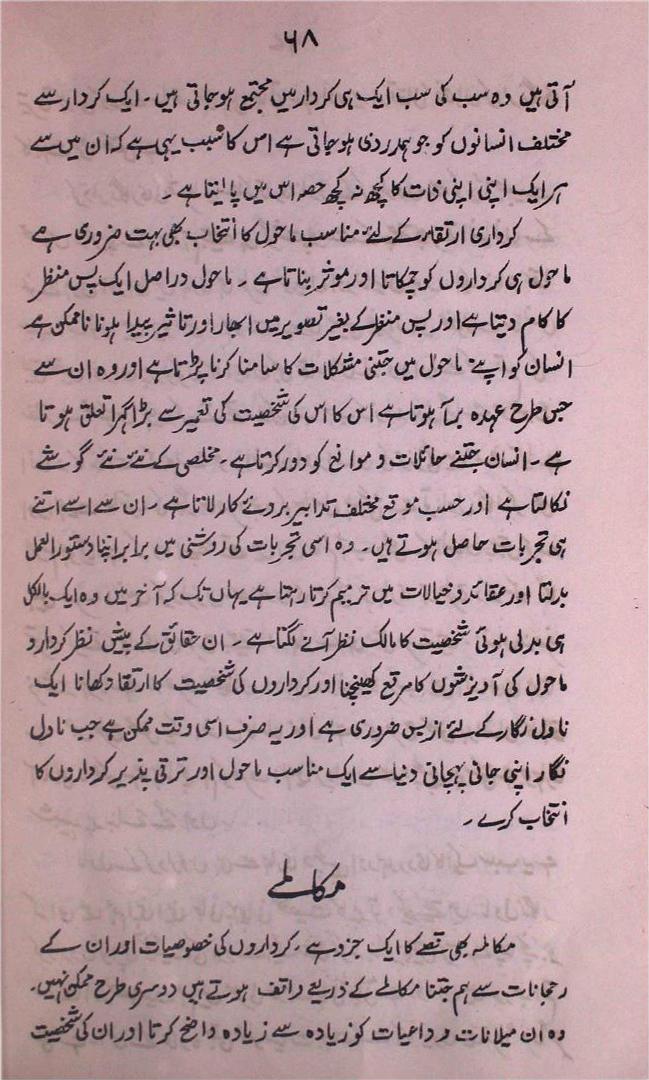 ۶۸
آتی ہیں وہ سب کی سب ایک ہی کردار میں مجتمع ہوجاتی ہیں۔ ایک کردار سے
مختلف انسانوں کو جو ہمدردی ہوجاتی ہے اس کا سبب یہی ہے کہ ان میں سے
ہر ایک اپنی اپنی ذات کا کچھ نہ کچھ حصہ اس میں پالیتا ہے۔
کرداری ارتقاء کے لئے مناسب ماحول کا انتخاب بھی بہت ضروری ہے
ماحول ہی کرداروں کو چمکاتا اور موثر بناتا ہے۔ ماحول دراصل ایک پس منظر
کا کام دیتا ہے اور پس منظر کے بغیر تصویر میں ابھار اور تاثیر پیدا ہونا ناممکن ہے
انسان کو اپنے ماحول میں جتنی مشکلات کا سامنا کرنا پڑتا ہے اور وہ ان سے
جس طرح عہدہ برآ ہوتا ہے اس کا اس کی شخصیت کی تعمیر سے بڑا گہرا تعلق ہوتا
ہے۔ انسان جتنے حائلات و موانع کو دور کرتا ہے۔ مخلصی کے نئے نئے گوشے
نکالتا ہے اور حسب موقع مختلف تدابیر بروئے کار لاتا ہے۔ ان سے اسے اتنے
ہی تجربات حاصل ہوتے ہیں۔ وہ اسی تجربات کی روشنی میں برابر اپنا دستور العمل
بدلتا اور عقائد و خیالات میں ترمیم کرتا رہتا ہے یہاں تک کہ آخر میں وہ ایک بالکل
ہی بدلی ہوئی شخصیت کا مالک نظر آنے لگتا ہے۔ ان حقائق کے پیش نظر کردار و
ماحول کی آویزشوں کا مرقع کھینچنا اور کرداروں کی شخصیت کا ارتقا دکھانا ایک
ناول نگار کے لئے ازبس ضروری ہے اور یہ صرف اسی وقت ممکن ہے جب ناول
نگار اپنی جانی پہچانی دنیا سے ایک مناسب ماحول اور ترقی پذیر کرداروں کا
انتخاب کرے۔
مکالمے
مکالمہ بھی قصے کا ایک جزو ہے۔ کرداروں کی خصوصیات اور ان کے
رجحانات سے ہم جتنا مکالمے کے ذریعے واقف ہوتے ہیں دوسری طرح ممکن نہیں۔
وہ ان میلانات و داعیات کو زیادہ سے زیادہ واضح کرتا اور ان کی شخصیت